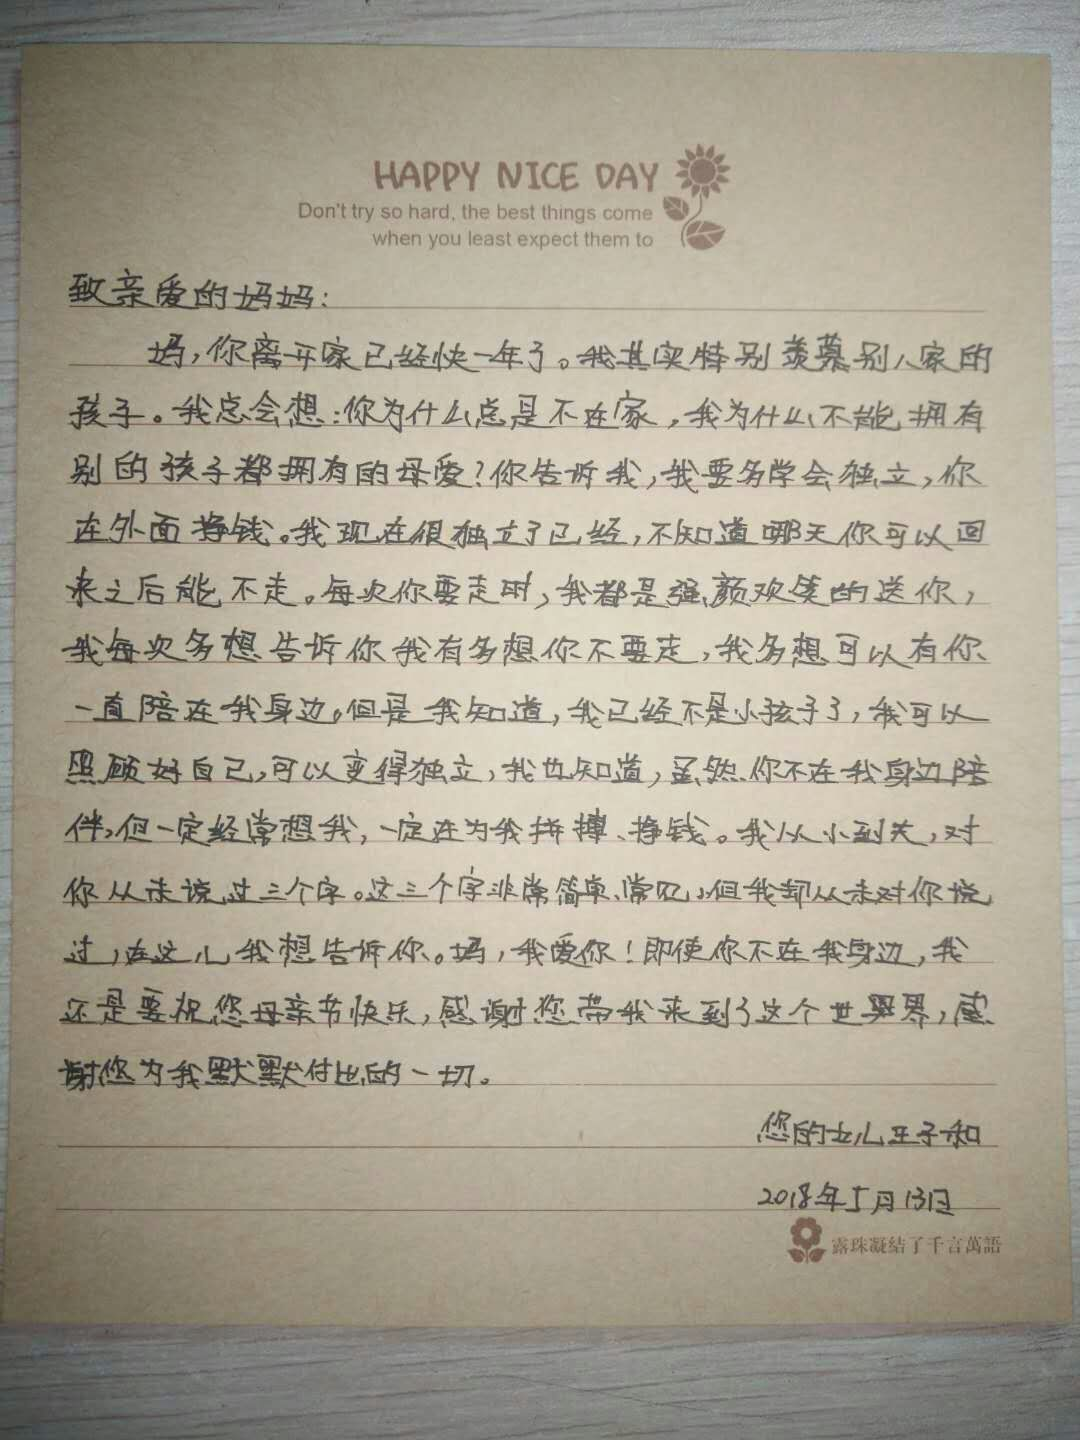 HAPPY NICE DAY
Don't try so hard, the best things come
when you least expect them to
致亲爱的妈妈：
妈，你离开家已经快一年了。我其实特别羡慕别人家的
孩子。我总会想：你为什么总是不在家，我为什么不能拥有
别的孩子都拥有的母爱？你告诉我，我要多学会独立，你
在外面挣钱。我现在很独立了已经，不知道哪天你可以回
来之后能不走。每次你要走时，我都是强颜欢笑的送你，
我每次多想告诉你我有多想你不要走，我多想可以有你
一直陪在我身边。但是我知道，我已经不是小孩子了，我可以
照顾好自己，可以变得独立，我也知道，虽然你不在我身边陪
伴，但一定经常想我，一定在为我拼搏、挣钱。我从小到大，对
你从未说过三个字。这三个字非常简单、常见，但我却从未对你说
过，在这儿我想告诉你。妈，我爱你！即使你不在我身边，我
还是要祝您母亲节快乐，感谢您带我来到了这个世界，感
谢您为我默默付出的一切。
您的女儿王子和
2018年5月13日
露珠凝结了千言萬語